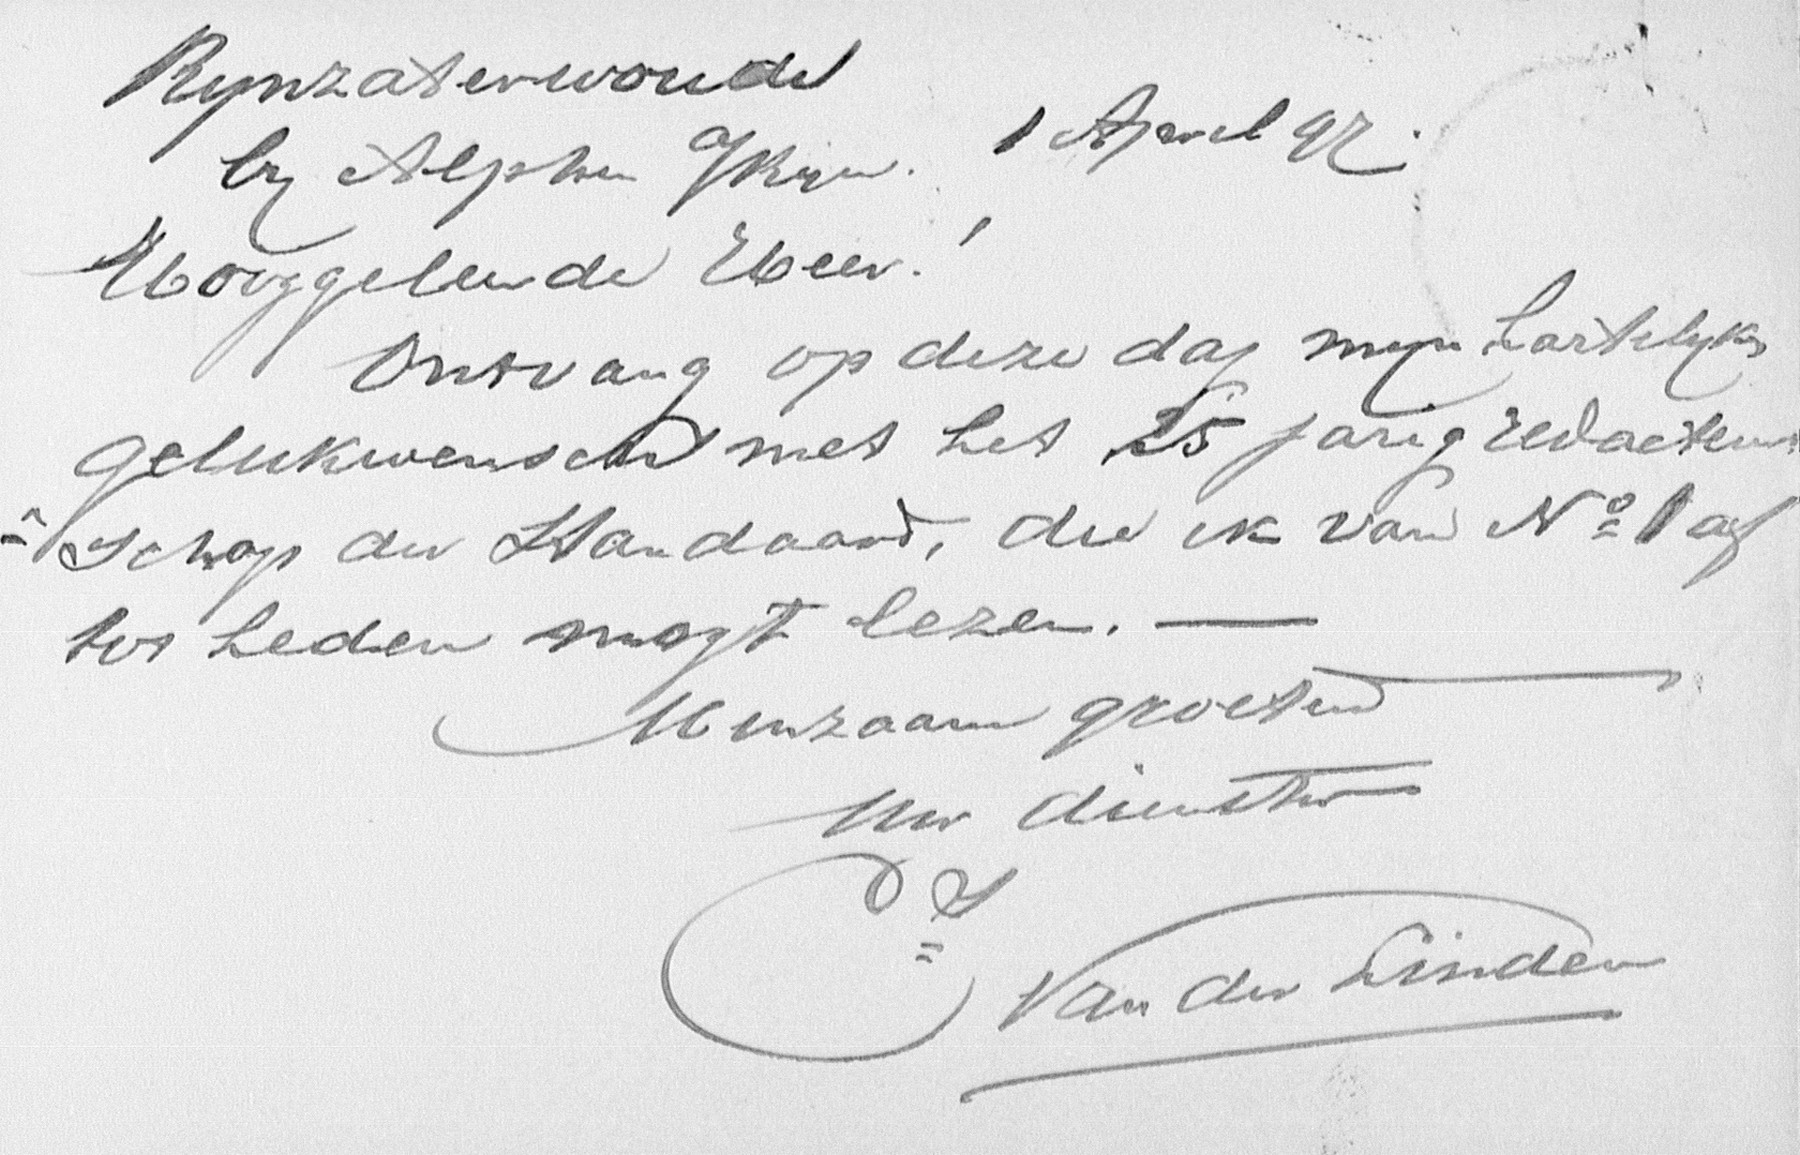 Rynzaterwoude
by Alphen a/Rijn. 1 April 97.
Hooggeleerde Heer!
Ontvang op deze dag mijn hartelyke
gelukwensch met het 25 jarig redacteur
= schap der Standaard, die ik van No 1 af
tot heden mogt lezen. —
Minzaam groetend
Uw dienstw
Ds
Van der Linden